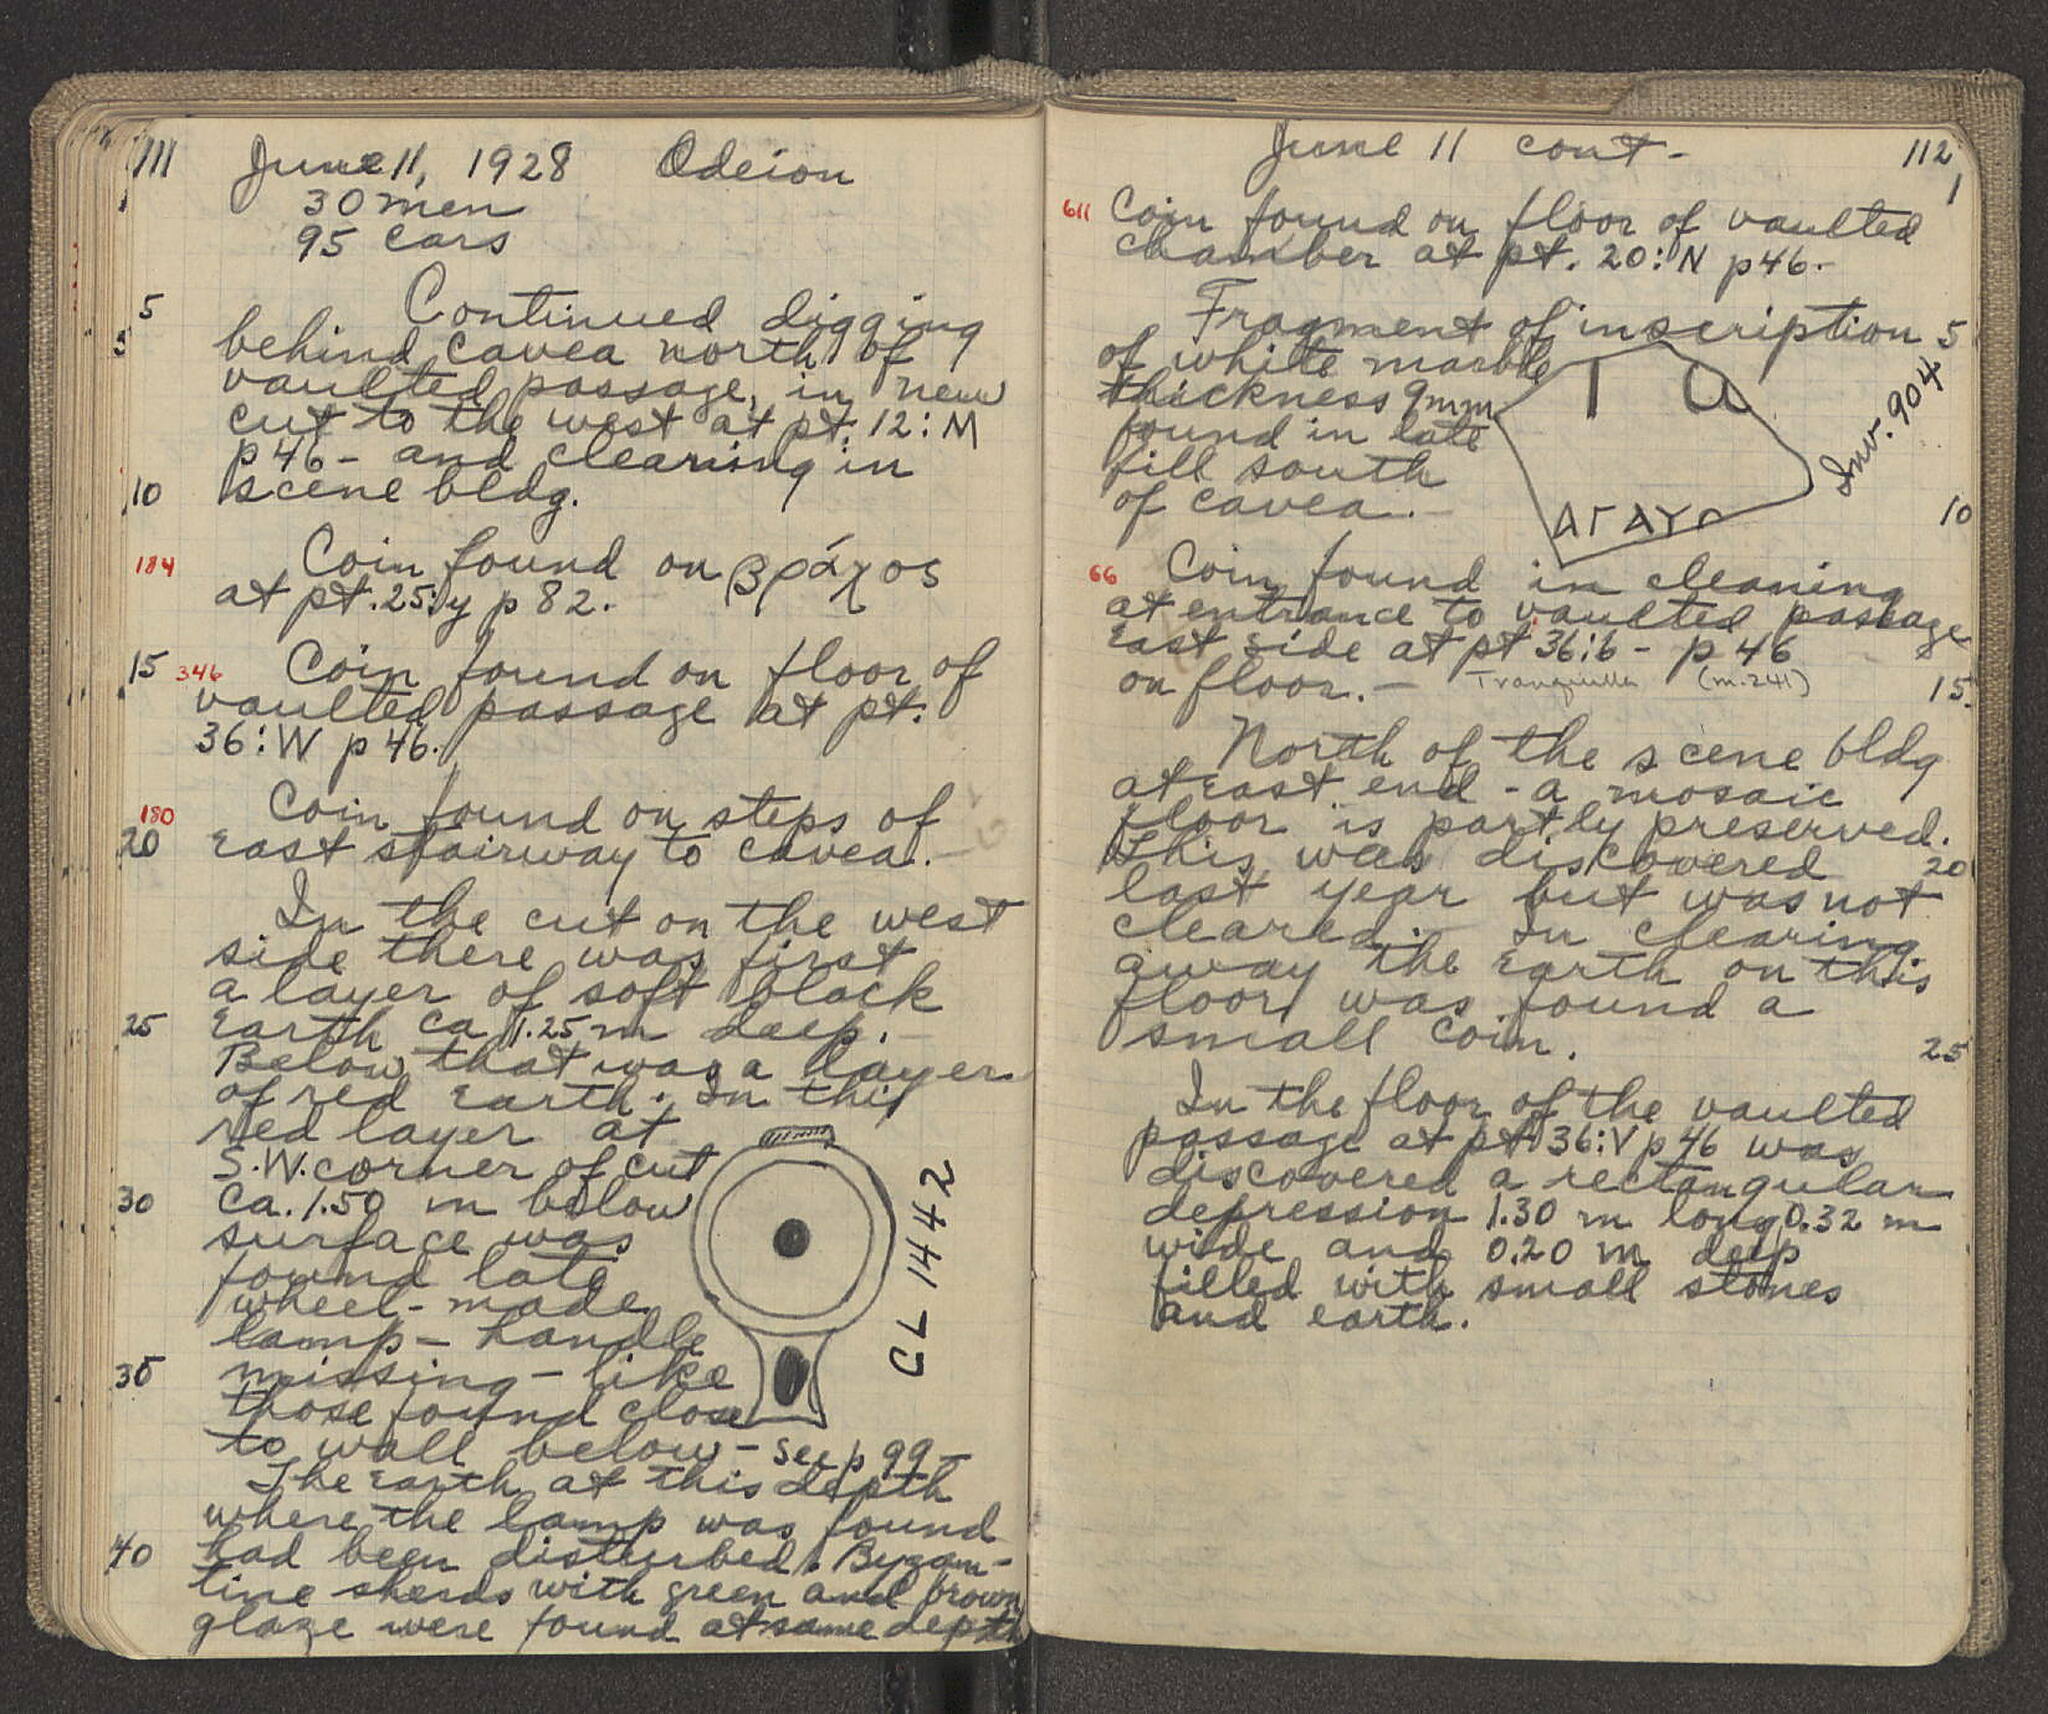 111
June 11, 1928 Odeion
30 men
95 cars
5 Continued digging
5 behind cavea north of
vaulted passage, in new
cut to the west at pt. 12:M
p 46 - and clearing in
10 scene bldg.
184 Coin found on βράχος
at pt. 25:y p 82.
15 346 Coin found on floor of
vaulted passage at pt.
36:W p 46.
180 Coin found on steps of
20 East stairway to cavea.-
In the cut on the west
side there was first
a layer of soft black
25 Earth ca 1.25 m deep.-
Below that was a layer
of red Earth. In this
red layer at
S.W. corner of cut
30 ca. 1.50 m below
surface was
found late
wheel-made
lamp - handle
35 missing - like
those found close
to wall below - see p 99 -
The Earth at this depth
where the lamp was found
40 had been disturbed. Byzan-
tine sherds with green and brown
glaze were found at same depth
CL 1442
June 11 cont - 112
1
611 Coin found on floor of vaulted
chamber at pt. 20:N p 46.-
Fragment of inscription 5
of white marble
thickness 9mm
found in late
fill south
of cavea.-
Inv. 904
ΑΓΑΥ
10
66 Coin found in cleaning
at entrance to vaulted passage
East side at pt 36:6 - p 46
on floor.- Tranquilla (m.241) 15
North of the scene bldg
at East end - a mosaic
floor is partly preserved.
This was discovered 20
last year but was not
cleared.- In clearing
away the Earth on this
floor was found a
small coin.
25
In the floor of the vaulted
passage at pt 36:V p 46 was
discovered a rectangular
depression 1.30 m long 0.32 m
wide and 0.20 m deep
filled with small stones
and earth.